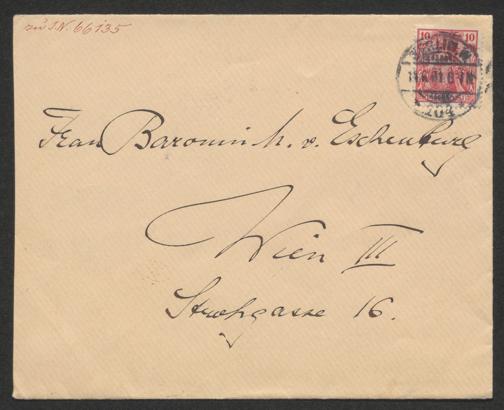 zu I.N. 66135
10 10
BERLIN W
Frau Baronin M. v. Eschenburg
Wien III
Strohgasse 16.